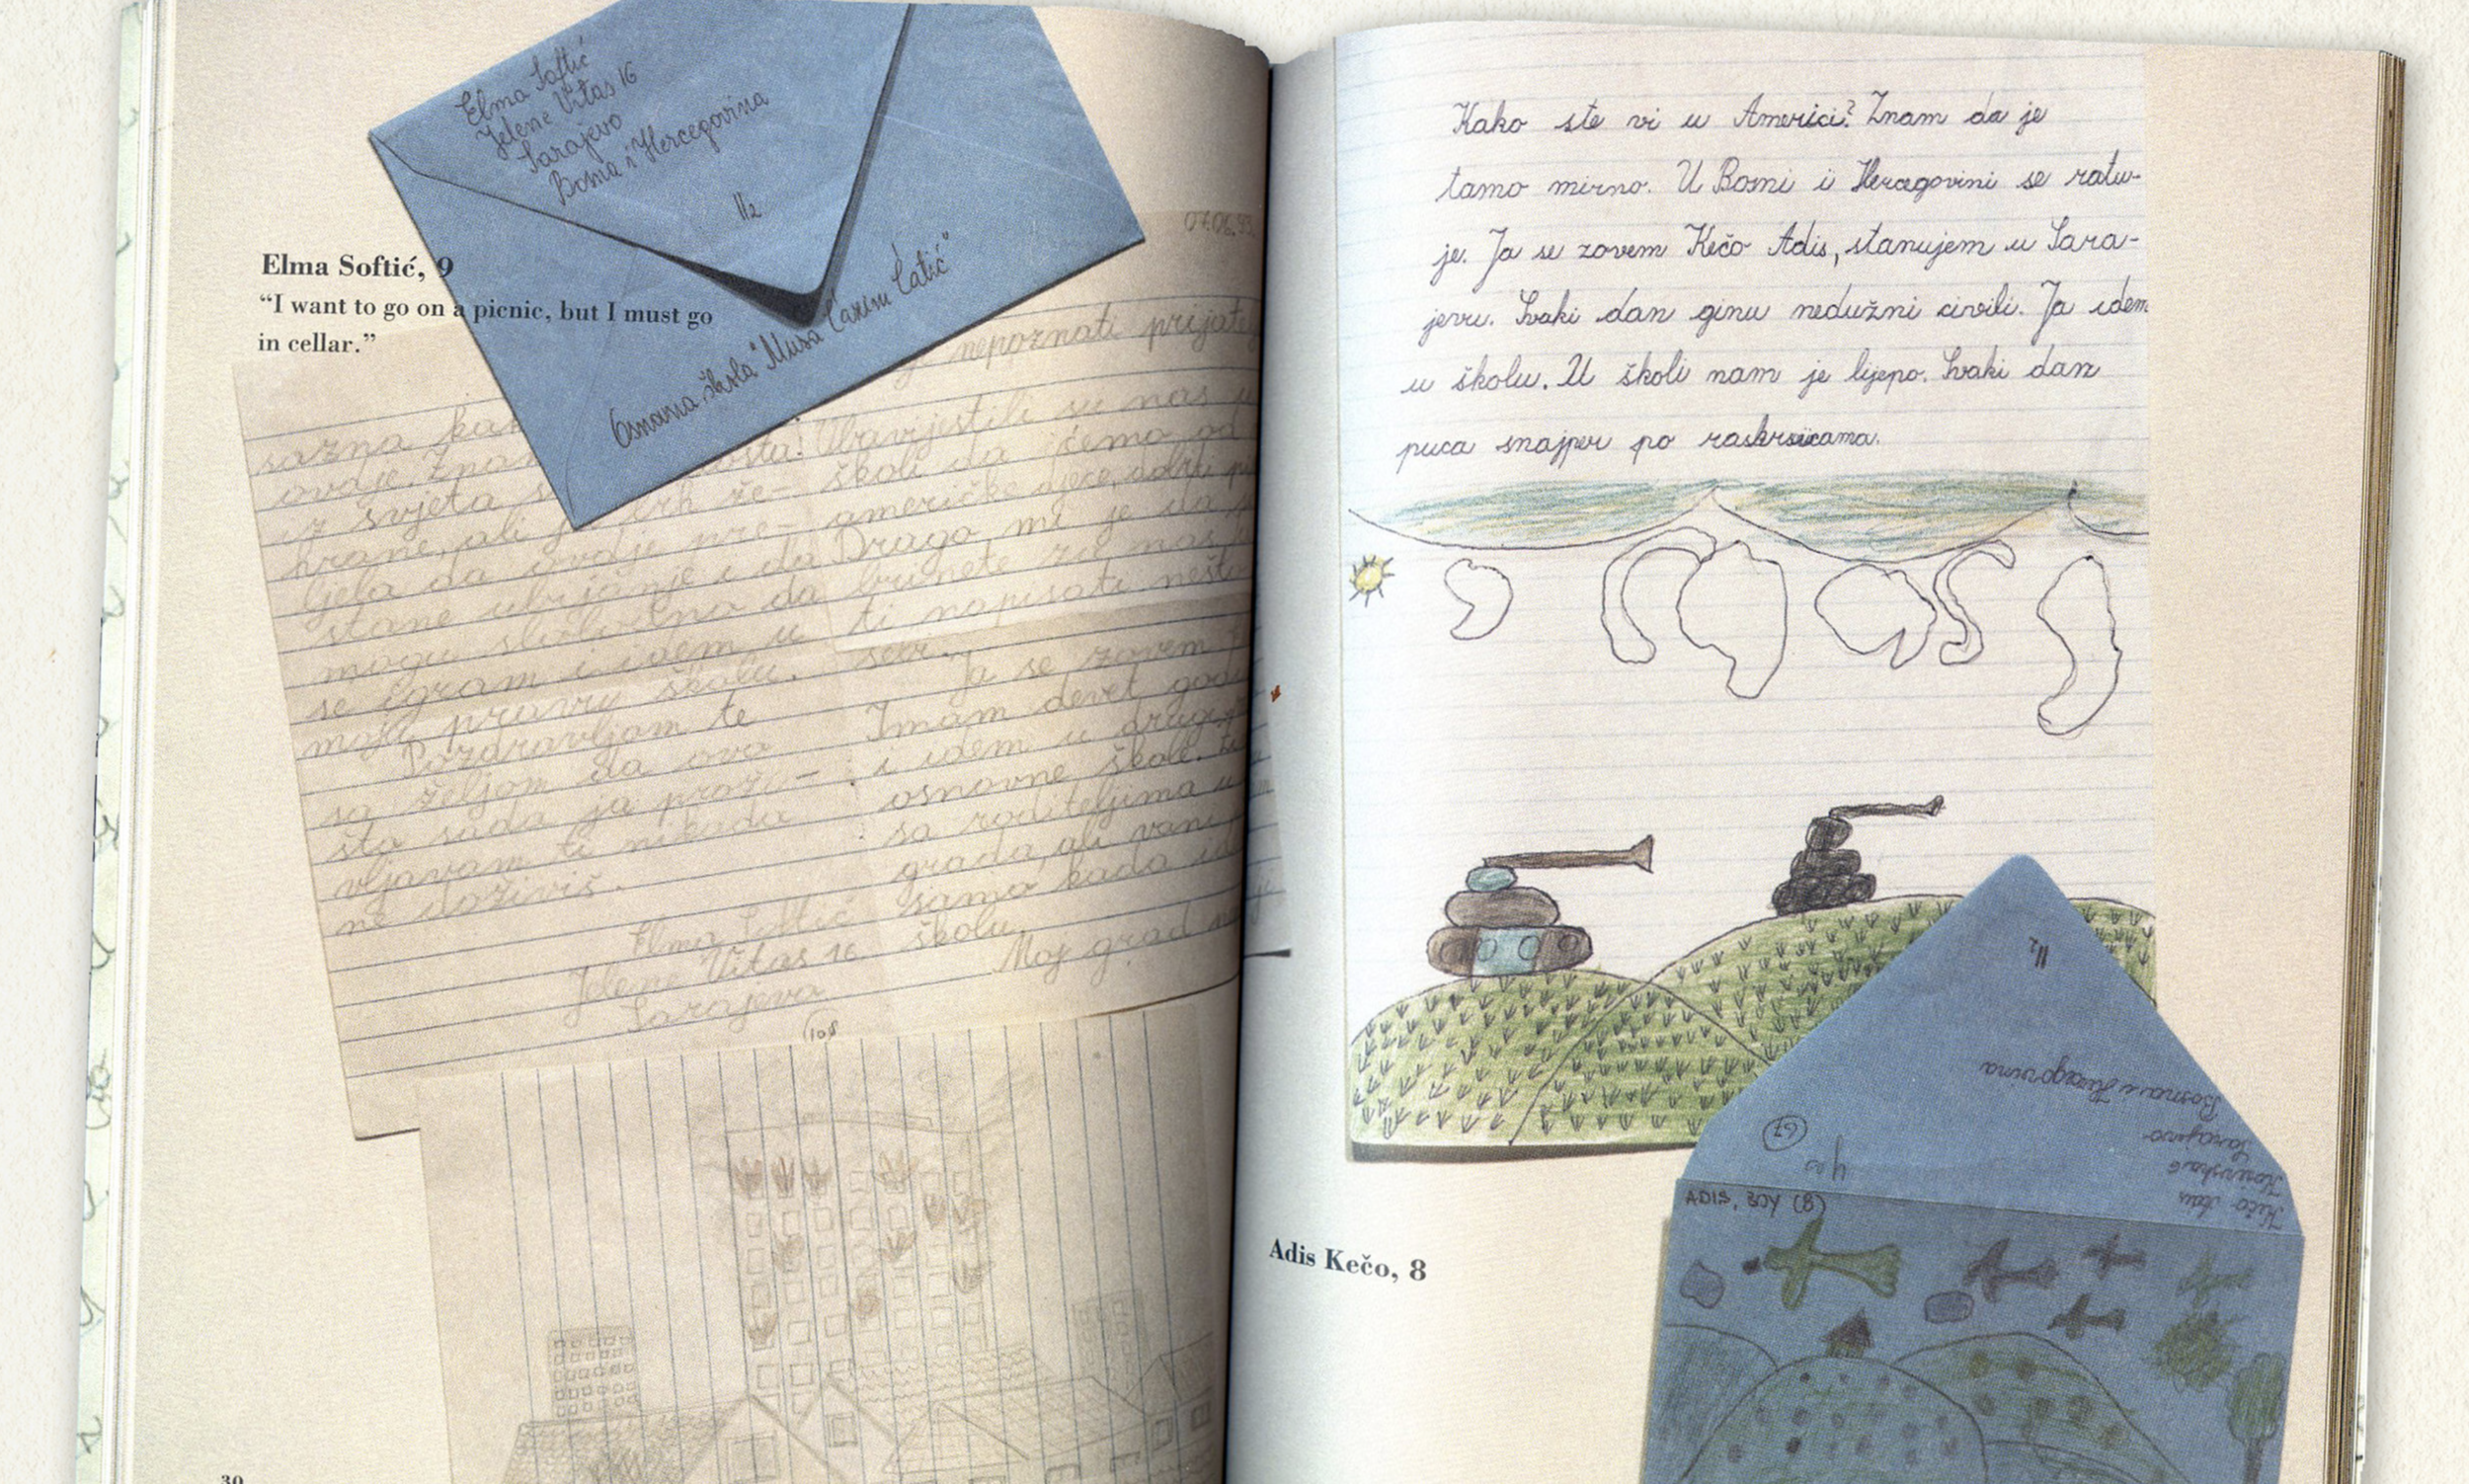 Elma Softić
Jelene Vitas 16
Sarajevo
Bosna i Hercegovina
II2
Osnovna škola "Musa Ćazim Ćatić"
07.06.93.
Elma Softić, 9
“I want to go on a picnic, but I must go
in cellar.”
nepoznati prijatelj
sazna kak
ovdje. Znam
iz svjeta
hrane, ali je
ljela da ovdje pre-
stane ubijanje i da
mogu slobodno da
se igram i idem u
moju pravu školu.
Pozdravljam te
sa željom da ova
šta sada ja proži-
vljavam ti nikada
ne doživiš.
Elma Softić
Jelene Vitas 16
Sarajevo
Obavjestili su nas u
školi da ćemo od
američke djece dobiti
Drago mi je da
brinete za nas
ti napisati nešto
sebi.
Ja se zovem
Imam devet godi
i idem u drugi
osnovne škole.
sa roditeljima u
grada, ali vani
samo kada idem
školu.
Moj grad
108
30
Kako ste vi u Americi? Znam da je
tamo mirno. U Bosni i Hercegovini se ratu-
je. Ja se zovem Kečo Adis, stanujem u Sara-
jevu. Svaki dan ginu nedužni civili. Ja idem
u školu. U školi nam je lijepo. Svaki dan
puca snajper po
II2
Bosna i Hercegovina
Sarajevo
Kečo Adis
67
yes
ADIS, BOY (8)
Adis Kečo, 8